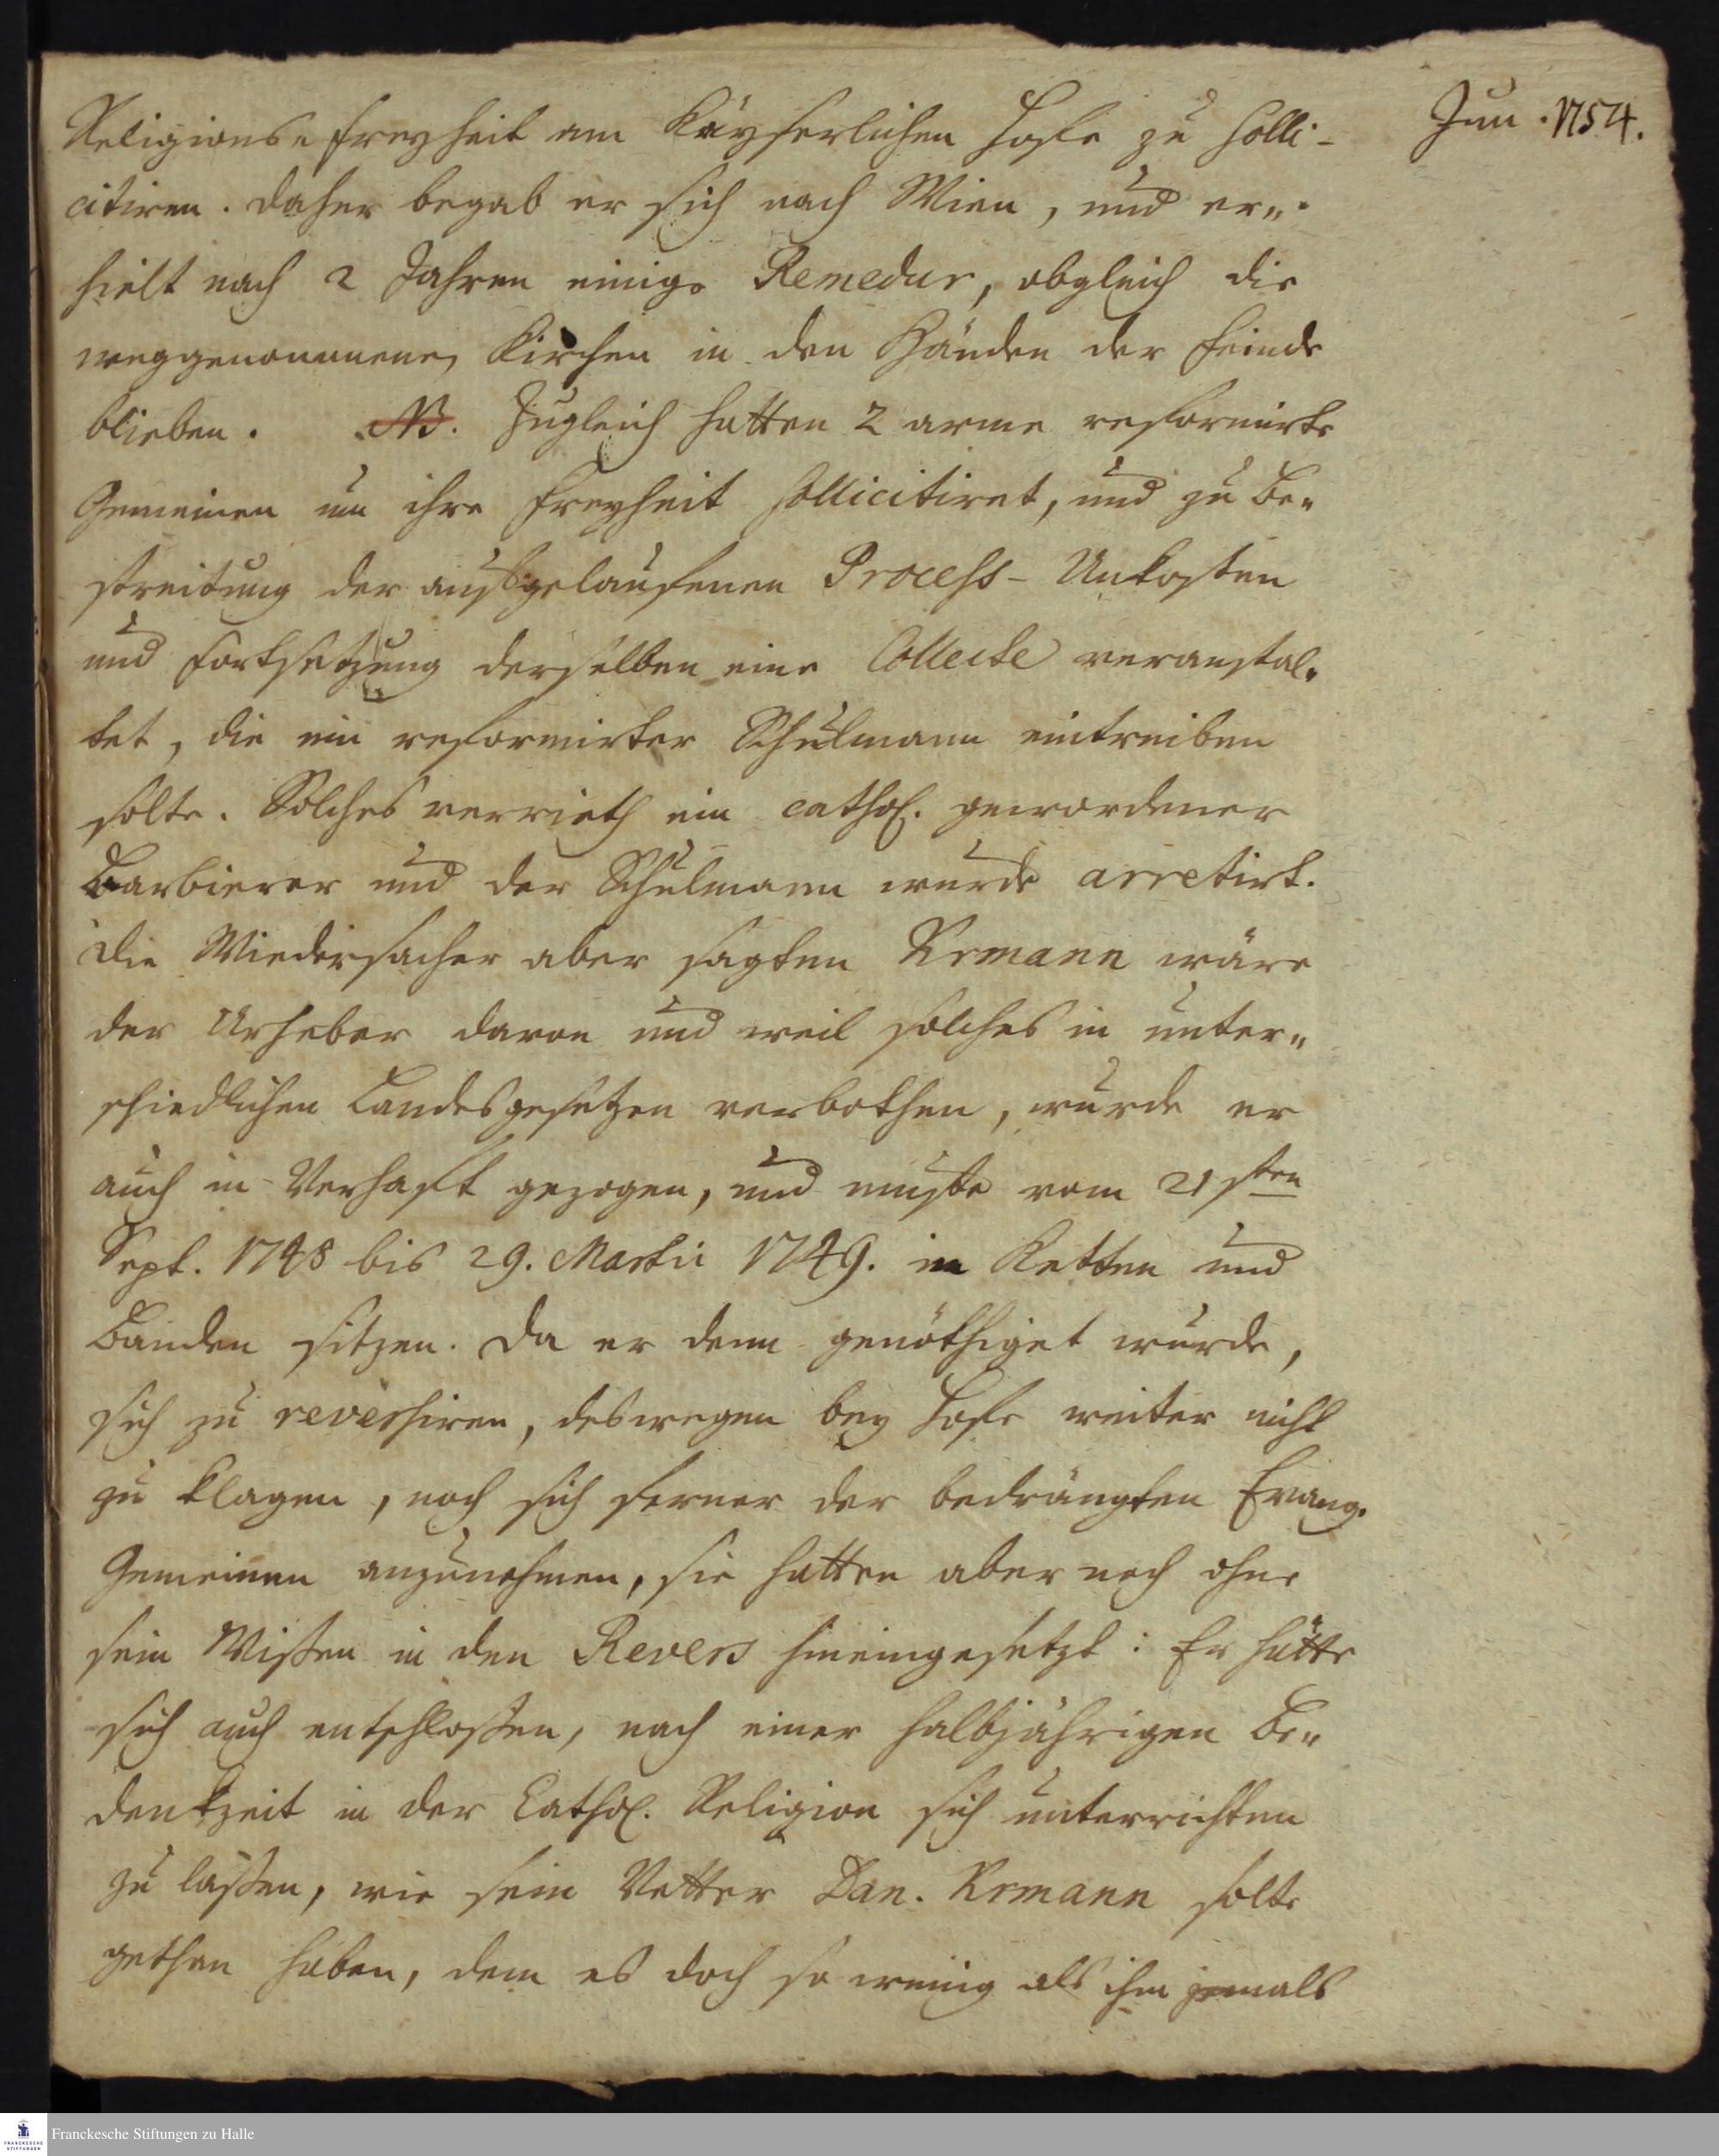 Jun. 1754.
Religions-freyheit am Käyserlichen Hofe zu solli-
citiren. Daher begab er sich nach Wien, und er-
hielt nach 2 Jahren einige Remedur, obgleich die
weggenommenen Kirchen in den Händen der Feinde
blieben. NB. Zugleich hatten 2 arme reformirte
Gemeinen um ihre Freyheit sollicitiret, und zu Be-
streitung der ausgelaufenen Process-Unkosten
und Fortsetzung derselben eine Collecte veranstal-
tet, die ein reformirter Schulmann eintreiben
solte. Solches verrieth ein cathol. gewordener
Barbierer und der Schulmann wurde arretirt.
Die Wiedersacher aber sagten Krmann wäre
der Urheber davon und weil solches in unter-
schiedlichen Landesgesetzen verbothen, wurde er
auch in Verhaft gezogen, und muste vom 21sten
Sept. 1748 bis 29. Martii 1749. in Ketten und
Banden sitzen. Da er denn genöthiget wurde,
sich zu reversiren, deswegen bey Hofe weiter nicht
zu klagen, noch sich ferner der bedrängten Evang.
Gemeinen anzunehmen, sie hatten aber noch ohne
sein Wißen in den Revers hineingesetzt: Er hätte
sich auch entschloßen, nach einer halbjährigen Be-
denkzeit in der Cathol. Religion sich unterrichten
zu laßen, wie sein Vetter Dan. Krmann solte
gethan haben, dem es doch so wenig als ihm jemals
Franckesche Stiftungen zu Halle
FRANCKESCHE STIFTUNGEN